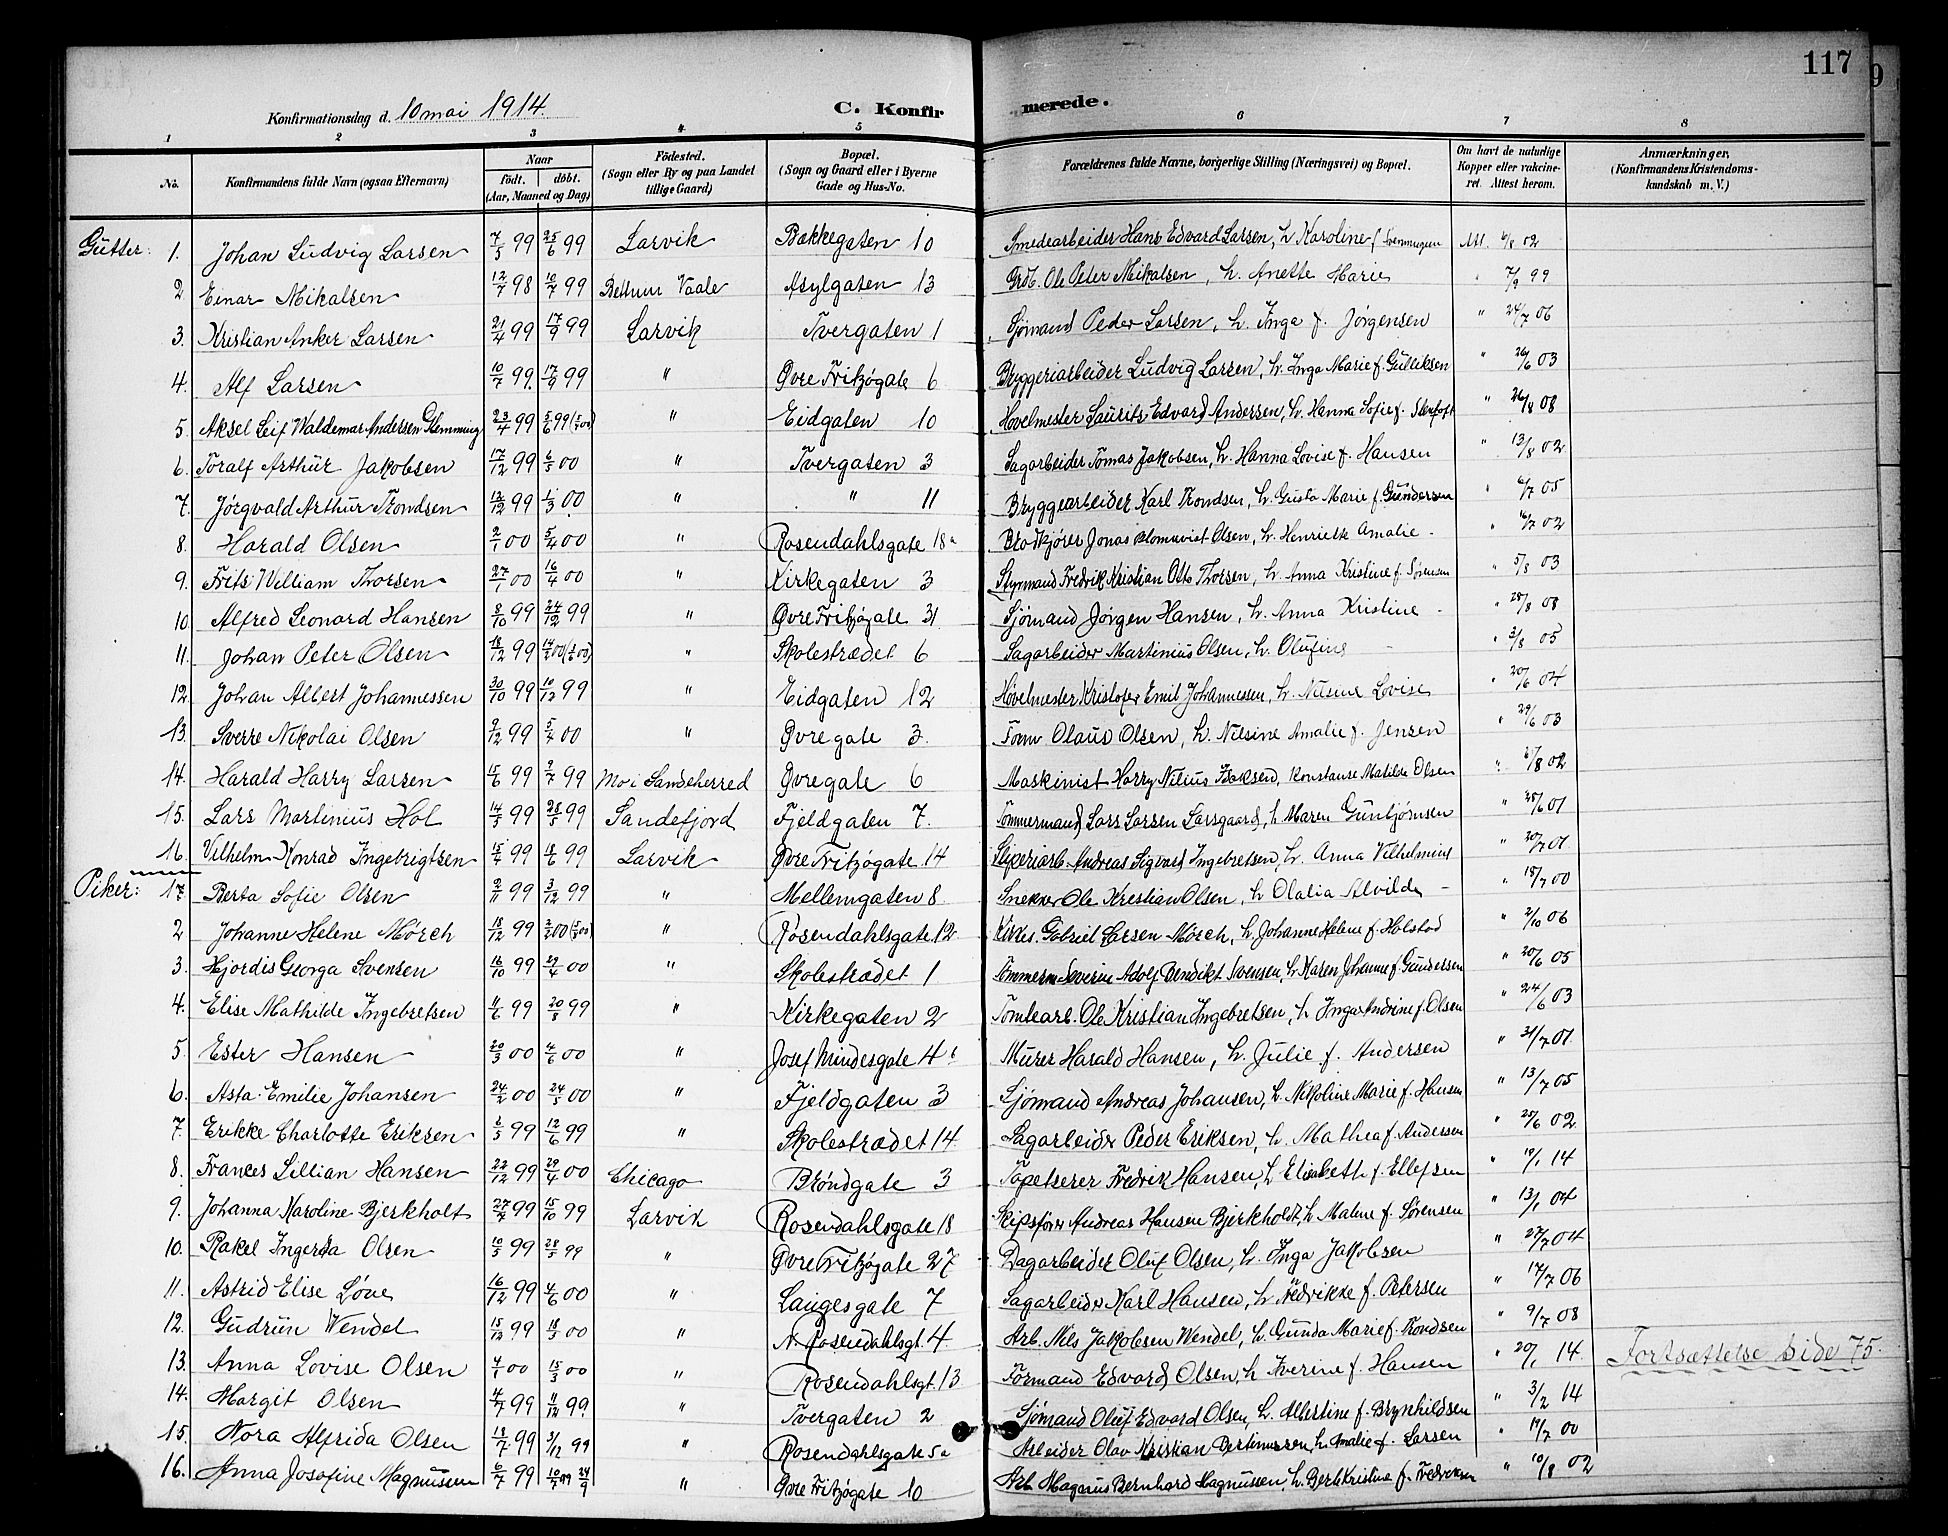 117
9
Konfirmationsdag d. 10 mai 1914.
C. Konfirmerede.
1 2 3 4 5 6 7 8
No. Konfirmandens fulde Navn (ogsaa Efternavn) Naar født. døbt. (Aar, Maaned og Dag) Fødested. (Sogn eller By og paa Landet tillige Gaard) Bopæl. (Sogn og Gaard eller i Byerne Gade og Hus-No. Forældrenes fulde Navne, borgerlige Stilling (Næringsvei) og Bopæl. Om havt de naturlige Kopper eller vakcineret. Attest herom. Anmærkninger, (Konfirmandens Kristendomskundskab m. V.)
Gutter: 1. Johan Ludvig Larsen 7/5 99 25/6 99 Larvik Bakkegaten 10 Smedearbeider Hans Edvard Larsen, h. Karoline f. Svenungsen Att. 6/8 02
2 Einar Mikalsen 12/7 98 10/7 99 Vaale Asylgaten 13 Ole Peter Mikalsen, h. Anette Marie " 7/9 99
3. Kristian Anker Larsen 21/4 99 17/9 99 Larvik Tvergaten 1 Sjømand Peder Larsen, h. Inga f. Jørgensen " 24/7 06
4. Alf Larsen 10/7 99. 17/9 99 " Øvre Fritzøgate 6 Bryggeriarbeider Ludvig Larsen, h. Inga Marie f. Gulliksen " 26/6 03
5. Aksel Leif Waldemar Andersen Flemming 23/4 99 5/6 99 " Eidgaten 10 Høvelmester Laurits Edvard Andersen, h. Hanna Sofie f. Stenfoft " 26/8 08
6. Toralf Arthur Jakobsen 17/12 99 6/5 00 " Tvergaten 3 Sagarbeider Tomas Jakobsen, h. Hanna Lovise f. Hansen " 13/8 02
7. Jørgvald Arthur Trondsen 12/12 99 1/3 00 " " 11 Bryggearbeider Karl Trondsen, h. Gusta Marie f. Gundersen " 6/7 05
8. Harald Olsen 2/1 00 5/4 00 " Rosendahlsgate 18a Brødkjører Jonas Blomqvist Olsen, h. Henriette Amalie - " 16/7 02
9. Frits William Thorsen 27/1 00 16/4 00 " Kirkegaten 3 Styrmand Fredrik Kristian Otto Thorsen, h. Anna Kristine f. Sørensen " 5/8 03
10. Alfred Leonard Hansen 8/10 99 24/12 99 " Øvre Fritzøgate 31 Sjømand Jørgen Hansen, h. Anna Kristine - " 28/8 08
11. Johan Peter Olsen 18/12 99 " Skolestrædet 6 Sagarbeider Martinius Olsen, h. Olufine - " 3/8 05
12. Johan Albert Johannessen 30/10 99 10/12 99 " Eidgaten 12 Høvelmester Kristofer Emil Johannessen, h. Nilsine Lovise " 20/6 04
13. Sverre Nikolai Olsen 9/12 99 5/4 00 " Øvregate 3. Form Olaus Olsen, h. Nilsine Amalie f. Jensen " 29/6 03
14. Harald Harry Larsen 15/6 99 9/7 99 Mo i Sandeherred Øvregate 6 Maskinist Harry Nilius Isaksen, Konstanse Matilde Olsen " 6/8 02
15. Lars Martinius Hol 14/3 99 28/5 99 Sandefjord Fjeldgaten 7. Tømmermand Lars Larsen Larsgaard, h. Maren Gunbjørnsen " 25/6 01
16. Vilhelm Konrad Ingebrigtsen 15/4 99 18/6 99 Larvik Øvre Fritzøgate 14 Sliperiarb. Andreas Sigvard Ingebretsen, h. Anna Vilhelmine " 20/7 01
Piker: 17. Berta Sofie Olsen 2/11 99 3/12 99 " Mellemgaten 8. Snekker Ole Kristian Olsen, h. Olalia Alvilde - " 18/7 00
2 Johanne Helene Mørch 18/12 99 " Rosendahlsgate 12 Gabriel Larsen Mørch, h. Johanne Helene f. Holstad " 2/10 06
3. Hjordis Georga Svensen 16/10 99 29/4 00 " Skolestrædet 1 Tømmerm. Severin Adolf Bendikt Svensen, h. Karen Johanne f. Gundersen " 20/6 05
4. Elise Mathilde Ingebretsen 11/6 99 20/8 99 " Kirkegaten 2 Tomtearb. Ole Kristian Ingebretsen, h. Inga Andrine f. Olsen " 24/6 03
5. Ester Hansen 20/3 00 4/6 00 " Josef Mindesgate 4b Murer Harald Hansen, h. Julie f. Andersen " 31/7 01
6. Asta Emilie Johansen 24/2 00 24/5 00 " Fjeldgaten 3 Sjømand Andreas Johansen, h. Nikoline Marie f. Hansen " 13/7 05
7. Erikke Charlotte Eriksen 6/5 99 12/6 99 " Skolestrædet 14. Sagarbeider Peder Eriksen, h. Mathea f. Andersen " 25/6 02
8. Frances Lillian Hansen 22/12 99 29/4 00 Chicago Brøndgate 3 Tapetserer Fredrik Hansen, h. Elisabeth f. Ellefsen " 19/1 14
9. Johanna Karoline Bjerkholt 27/7 99 15/10 99 Larvik Rosendahlsgate 18 Skipsfører Andreas Hansen Bjerkholdt, h. Malene f. Sørensen " 13/1 04
10. Rakel Ingerda Olsen 10/5 99 28/5 99 " Øvre Fritzøgate 27 Dagarbeider Oluf Olsen, h. Inga Jakobsen " 27/7 04
11. Astrid Elise Løve 16/12 99 4/6 00 " Laugesgate 7 Sagarbeider Karl Hansen, h. Fredrikke f. Petersen " 17/7 06
12. Gudrun Wendel 15/12 99 18/3 00 " N. Rosendahlsgt. 4 Arb. Nils Jakobsen Wendel, h. Gunda Marie f. Trondsen " 9/7 08
13. Anna Lovise Olsen 4/1 00 15/3 00 " Rosendahlsgt. 13 Formand Edvard Olsen, h. Iverine f. Hansen " 29/1 14. Fortsættelse side 75.
14. Margit Olsen 4/7 99 11/12 99. " Tvergaten 2 Sjømand Oluf Edvard Olsen, h. Albertine f. Brynhildsen " 3/2 14
15. Nora Alfrida Olsen 18/7 99 3/12 99 " Rosendahlsgate 5a Arbeider Olav Kristian Bertinussen, h. Amalie f. Larsen " 17/7 00
16. Anna Josefine Magnussen 6/7 99 10/7 99 24/9 " Øvre Fritzøgate 10 Arb Magnus Bernhard Magnussen, h. Berte Kristine f. Fredriksen " 10/8 02